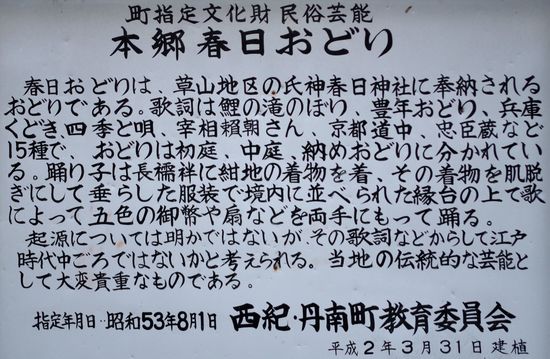 町指定文化財民俗芸能
本郷春日おどり
春日おどりは、草山地区の氏神春日神社に奉納される
おどりである。歌詞は鯉の滝のぼり、豊年おどり、兵庫
くどき、四季と唄、宰相頼朝さん、京都道中、忠臣蔵など
15種で、おどりは初庭、中庭、納めおどりに分かれてい
る。踊り子は長襦袢に紺地の着物を着、その着物を肌脱
ぎにして垂らした服装で境内に並べられた縁台の上で歌
によって五色の御幣や扇などを両手にもって踊る。
起源については明かではないが、その歌詞などからして江戸
時代中ごろではないかと考えられる。当地の伝統的な芸能と
して大変貴重なものである。
指定年月日・昭和53年8月1日 西紀・丹南町教育委員会
平成2年3月31日 建植